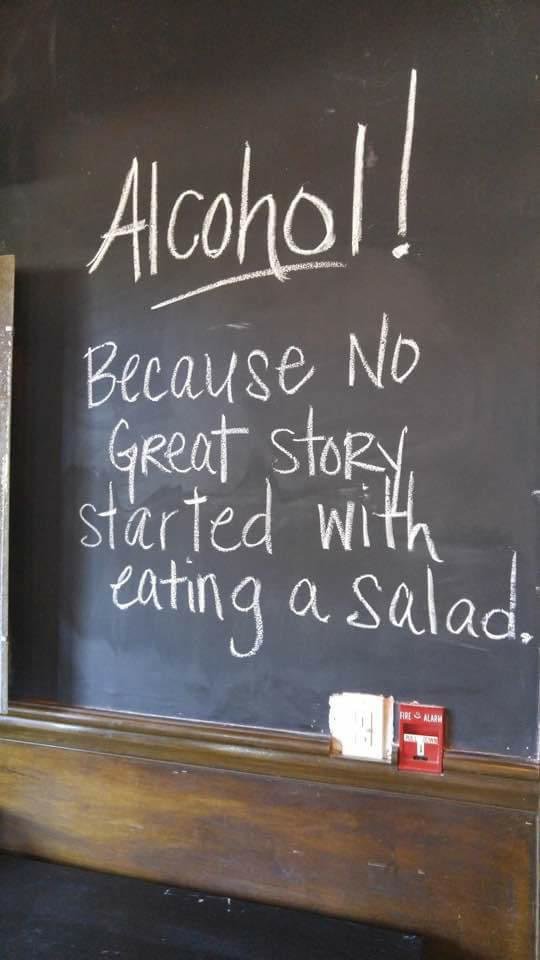 Alcohol!
Because No
Great story
started with
eating a salad.
FIRE ALARM
PULL DOWN